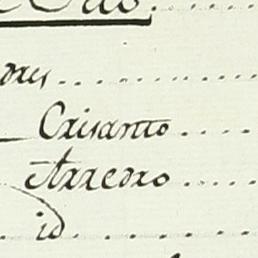 dres
Crisanto
Arredro
id